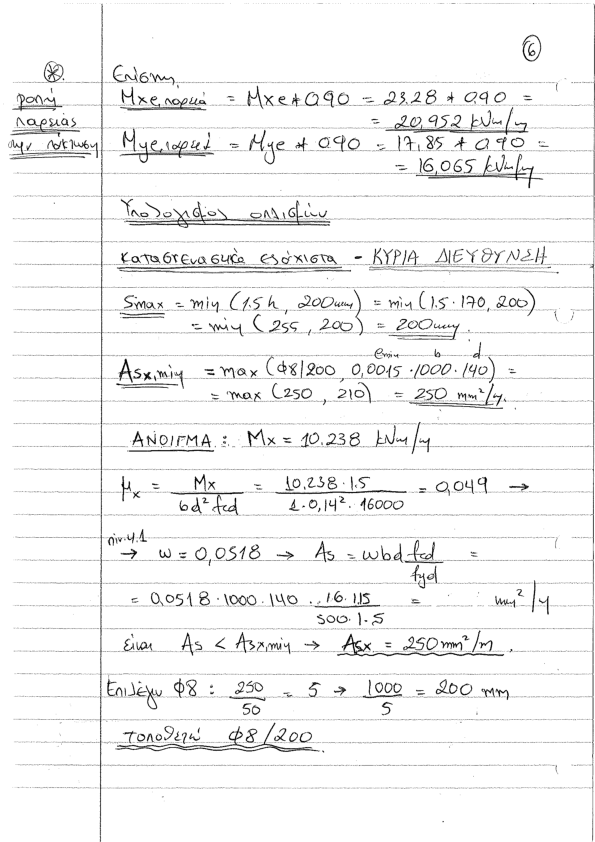 6
Επίσης,
* ροπή παρειάς την πάκτωση
Mxe,παρειά = Mxe * 0,90 = 23.28 * 0.90 =
= 20,952 kNm/m
Mye,παρειά = Mye * 0.90 = 17,85 * 0,90 =
= 16,065 kNm/m
Υπολογισμος οπλισμών
κατασκευαστικά ελάχιστα - ΚΥΡΙΑ ΔΙΕΥΘΥΝΣΗ
Smax = min (1.5h, 200mm) = min (1.5·170, 200)
= min (255, 200) = 200mm.
ρmin b d
Asx,min = max (Φ8/200, 0,0015·1000·140) =
= max (250, 210) = 250 mm²/m.
ΑΝΟΙΓΜΑ: Mx = 10.238 kNm/m
μx = Mx / bd² fcd = 10.238·1.5 / 1·0,14²·16000 = 0,049 →
πιν.4.1
→ ω = 0,0518 → As = ωbd fcd / fyd =
= 0,0518·1000·140·16·1.15 / 500·1.5 = mm²/m
είναι As < Asx,min → Asx = 250mm²/m.
Επιλέγω Φ8: 250 / 50 = 5 → 1000 / 5 = 200 mm
τοποθετώ Φ8/200